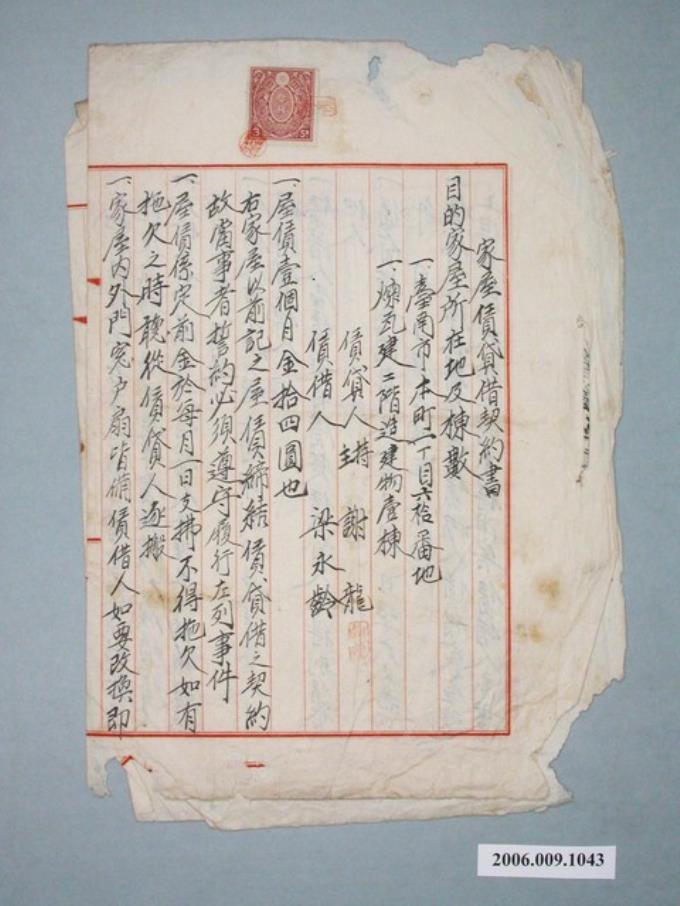 家屋賃貸借契約書
目的家屋所在地及棟數
一、臺南市本町一丁目六拾番地
一、煉瓦建二階造建物壹棟
賃貸人 謝龍
賃借人 梁永齡
一、屋賃壹個月金拾四圓也
右家屋以前記之屋賃締結賃貸借之契約
故當事者誓約必須遵守履行左列事件
一、屋賃係定前金於每月一日支拂不得拖欠如有
拖欠之時聽從賃貸人逐搬
一、家屋內外門窓户扇皆備賃借人如要改換即
3 Sn
2006.009.1043